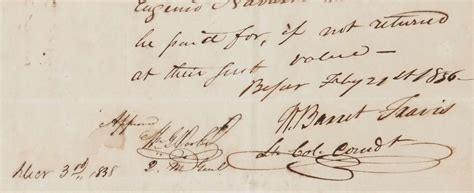 Eugenio Navarro
be paid for, if not returned
at their just value—
Bejar Feby 21st 1836
W. Barret Travis
Lt. Col. Comdt
Approved
Qr. M. Genl
Decr 3rd, 1838